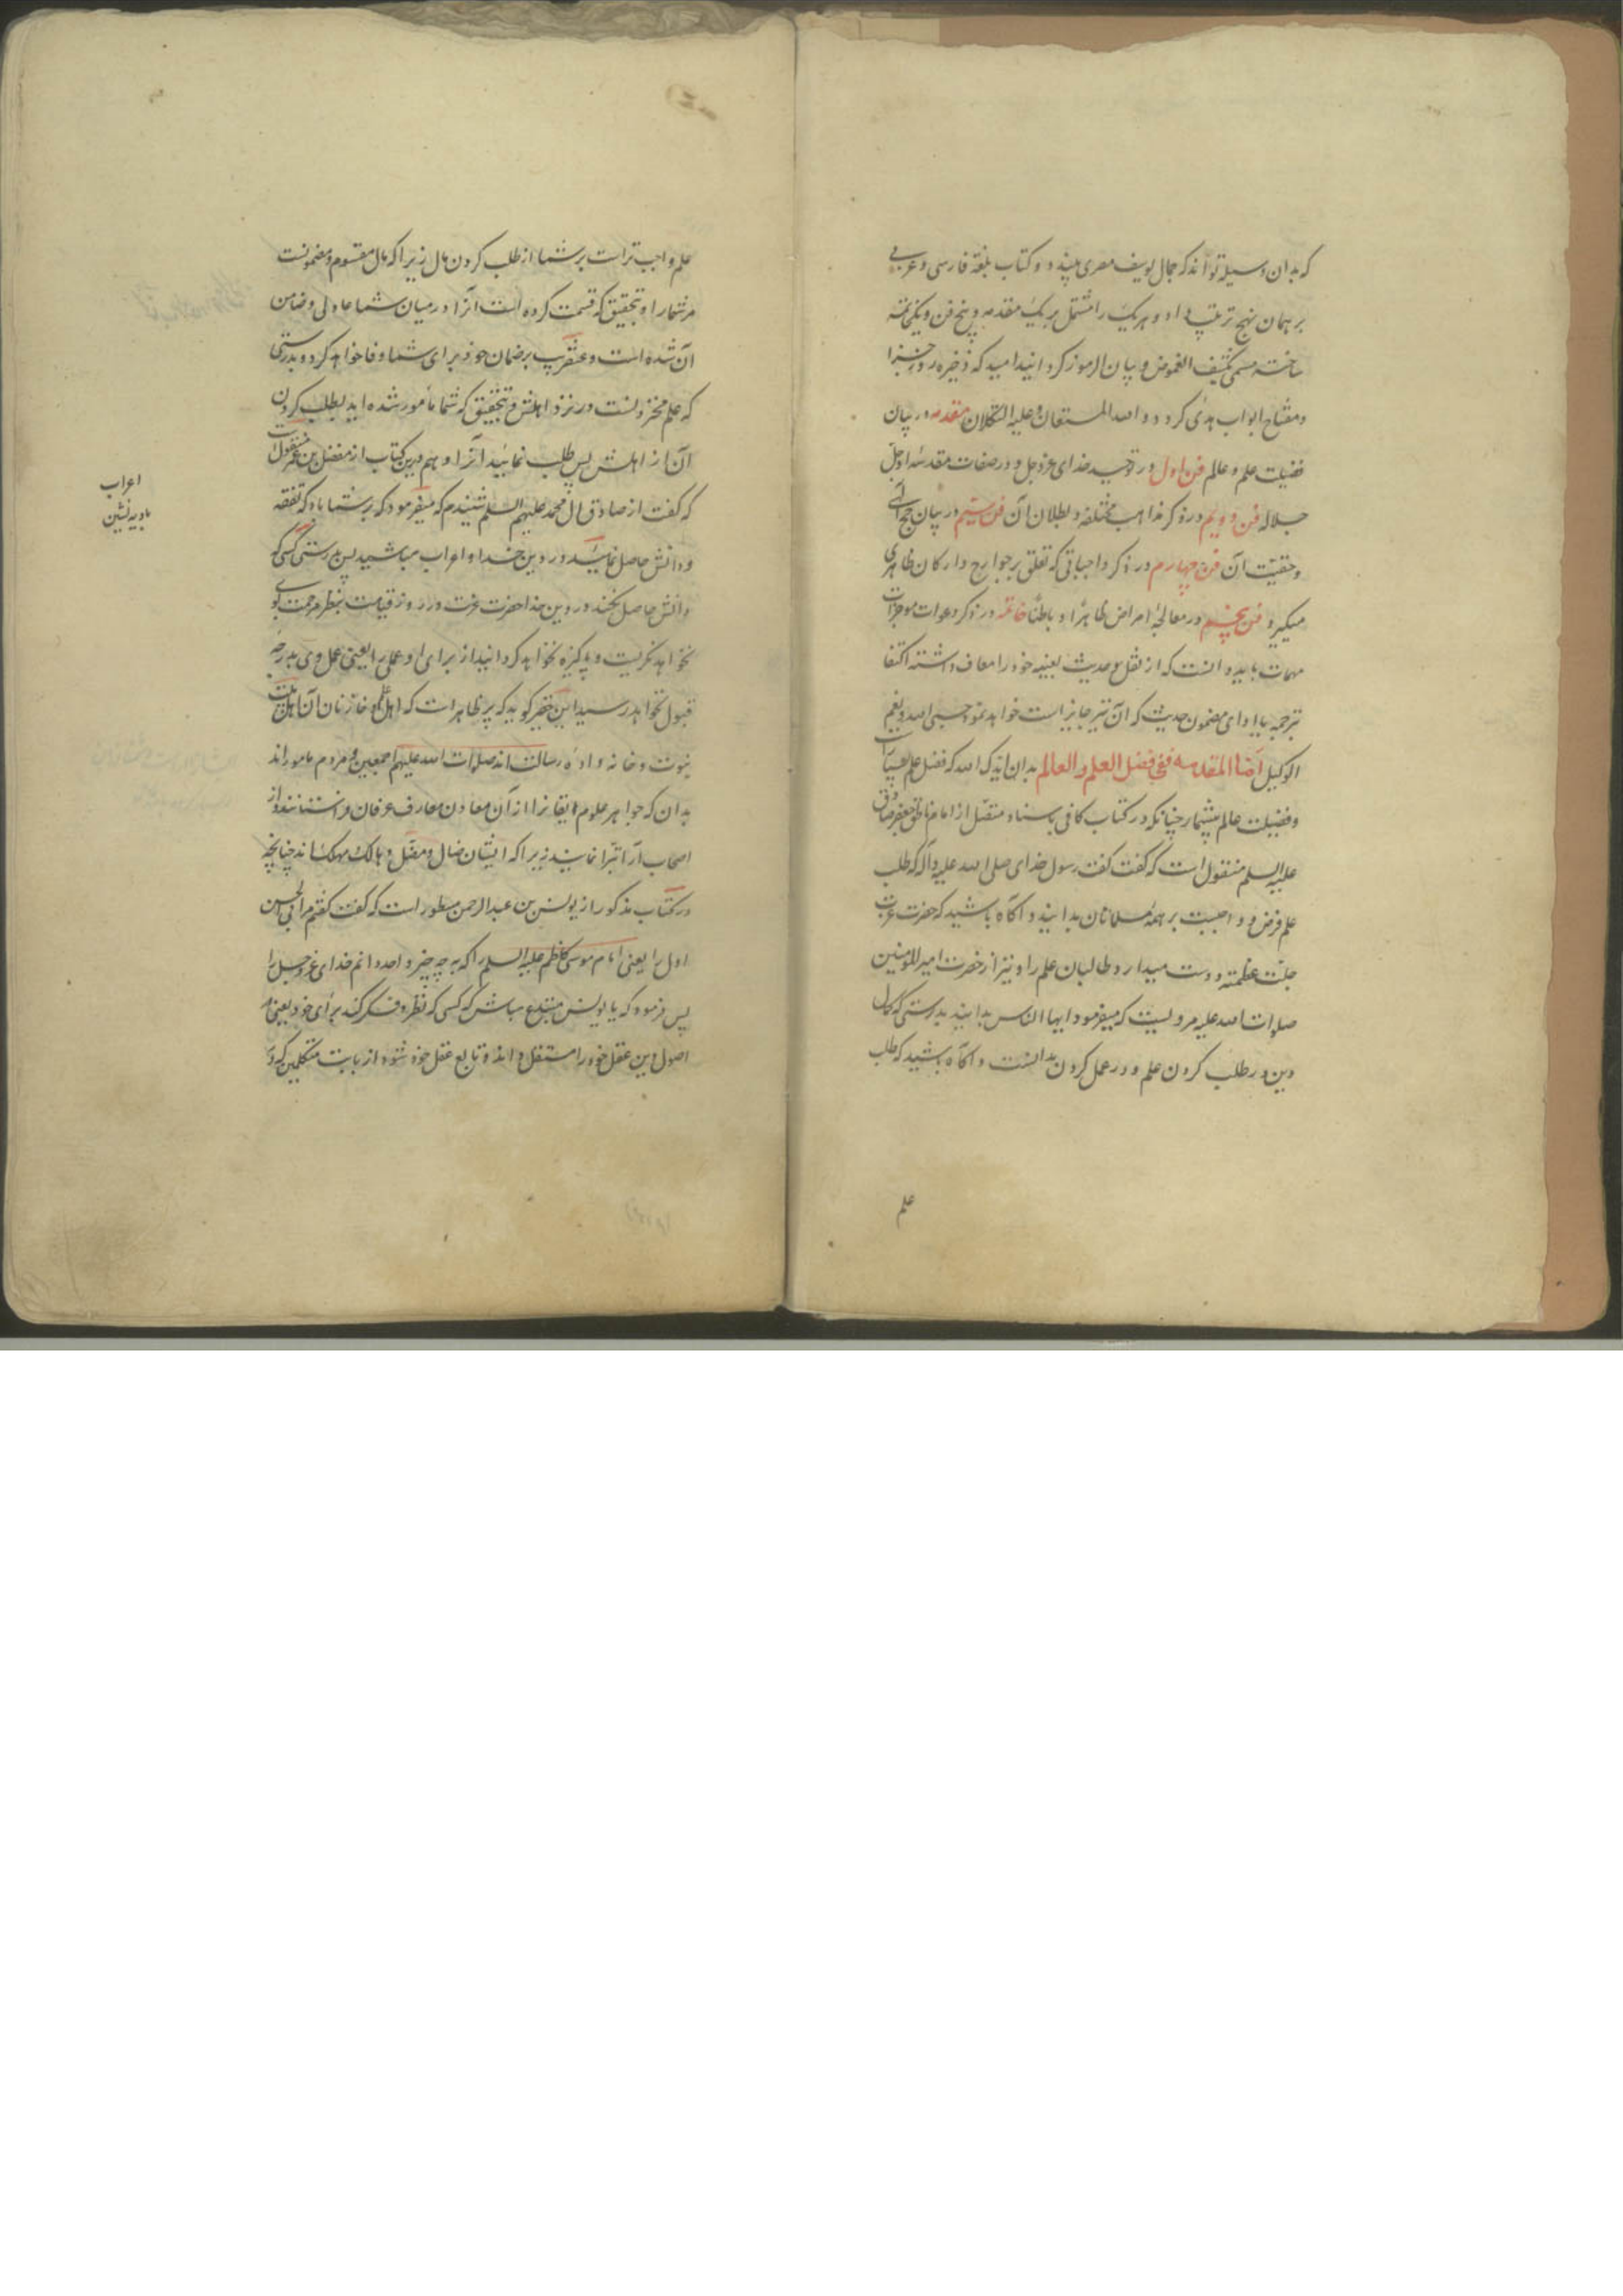 که بدان وسیله تواند که جمال یوسف مصری بیند و دو کتاب بلغة فارسی و عربی
بر همان نهج ترتیب داد و هر یک را مشتمل بر یک مقدمه و پنج فن و یک خاتمه
ساخته مسمی بکشف الغموض و بیان الرموز گردانید امید که ذخیره روز جزا
و مفتاح ابواب هدی گردد و الله المستعان و علیه التکلان مقدمه در بیان
فضیلت علم و عالم فن اول در توحید خدای عزوجل و در صفات مقدسه او جل
جلاله فن دویم در ذکر مذاهب مختلفه و بطلان آن فن سیم در بیان حجج الهی
و حقیت آن فن چهارم در ذکر واجباتی که تعلق بر جوارح و ارکان ظاهری
میگیرد فن پنجم در معالجه امراض ظاهرا و باطنا خاتمه در ذکر دعوات موجزات
مهمات باید دانست که از نقل حدیث بعینه خود را معاف داشته اکتفا
بترجمه یا ادای مضمون حدیث که آن نیز جایز است خواهد نمود حسبی الله و نعم
الوکیل اما المقدمه ففی فضل العلم و العالم بدان ایدک الله که فضل علم بسیار است
و فضیلت عالم بیشمار چنانکه در کتاب کافی باسناد متصل از امام ناطق جعفر صادق
علیه السلم منقول است که گفت گفت رسول خدای صلی الله علیه و آله که طلب
علم فرض و واجبست بر همه مسلمانان بدانید و آگاه باشید که حضرت عزت
جلت عظمته دوست میدارد طالبان علم را و نیز از حضرت امیر المومنین
صلوات الله علیه مرویست که میفرمود ایها الناس بدانید بدرستی که کمال
دین در طلب کردن علم و در عمل کردن بدانست و آگاه باشید که طلب
علم
علم واجب تر است بر شما از طلب کردن مال زیرا که مال مقسوم و مضمونست
مر شما را و بتحقیق که قسمت کرده است آنرا در میان شما عادلی و ضامن
آن شده است و عنقریب بر ضمان خود برای شما وفا خواهد کرد و بدرستی
که علم مخزونست در نزد اهلش و بتحقیق که شما مأمور شده اید بطلب کردن
آن از اهلش پس طلب نمایید آنرا و هم درین کتاب از مفضل بن عمر منقول است
که گفت از صادق آل محمد علیهم السلم شنیدم که میفرمود که بر شما باد که تفقه
و دانش حاصل نمایید در دین خدا و اعراب مباشید پس بدرستی کسی که
دانش حاصل نکند در دین خدا حضرت عزت در روز قیامت بنظر مرحمت بسوی او
نخواهد نگریست و پاکیزه نخواهد گردانید از برای او عملی را یعنی عمل وی بدرجه
قبول نخواهد رسید این حقیر گوید که پر ظاهر است که اهل علم و خازنان آن اهل بیت
نبوت و خانه واده رسالت اند صلوات الله علیهم اجمعین و مردم مامورند
بدان که جواهر علوم ایقانرا از آن معادن معارف عرفان فرا ستانند و از
اصحاب آرا تبرا نمایند زیرا که ایشان ضال و مضل و هالک و مهلک اند چنانچه
در کتاب مذکور از یونس بن عبد الرحمن مسطور است که گفت گفتم مر ابی الحسن
اول را یعنی امام موسی کاظم علیه السلم را که به چه چیز واحد دانم خدای عزوجل را
پس فرمود که یا یونس مبتدع مباش که کسی که نظر و فکر کند برای خود یعنی در
اصول دین عقل خود را مستقل داند و تابع عقل خود شود از بابت متکلمین گردد
اعراب
بادیه نشین